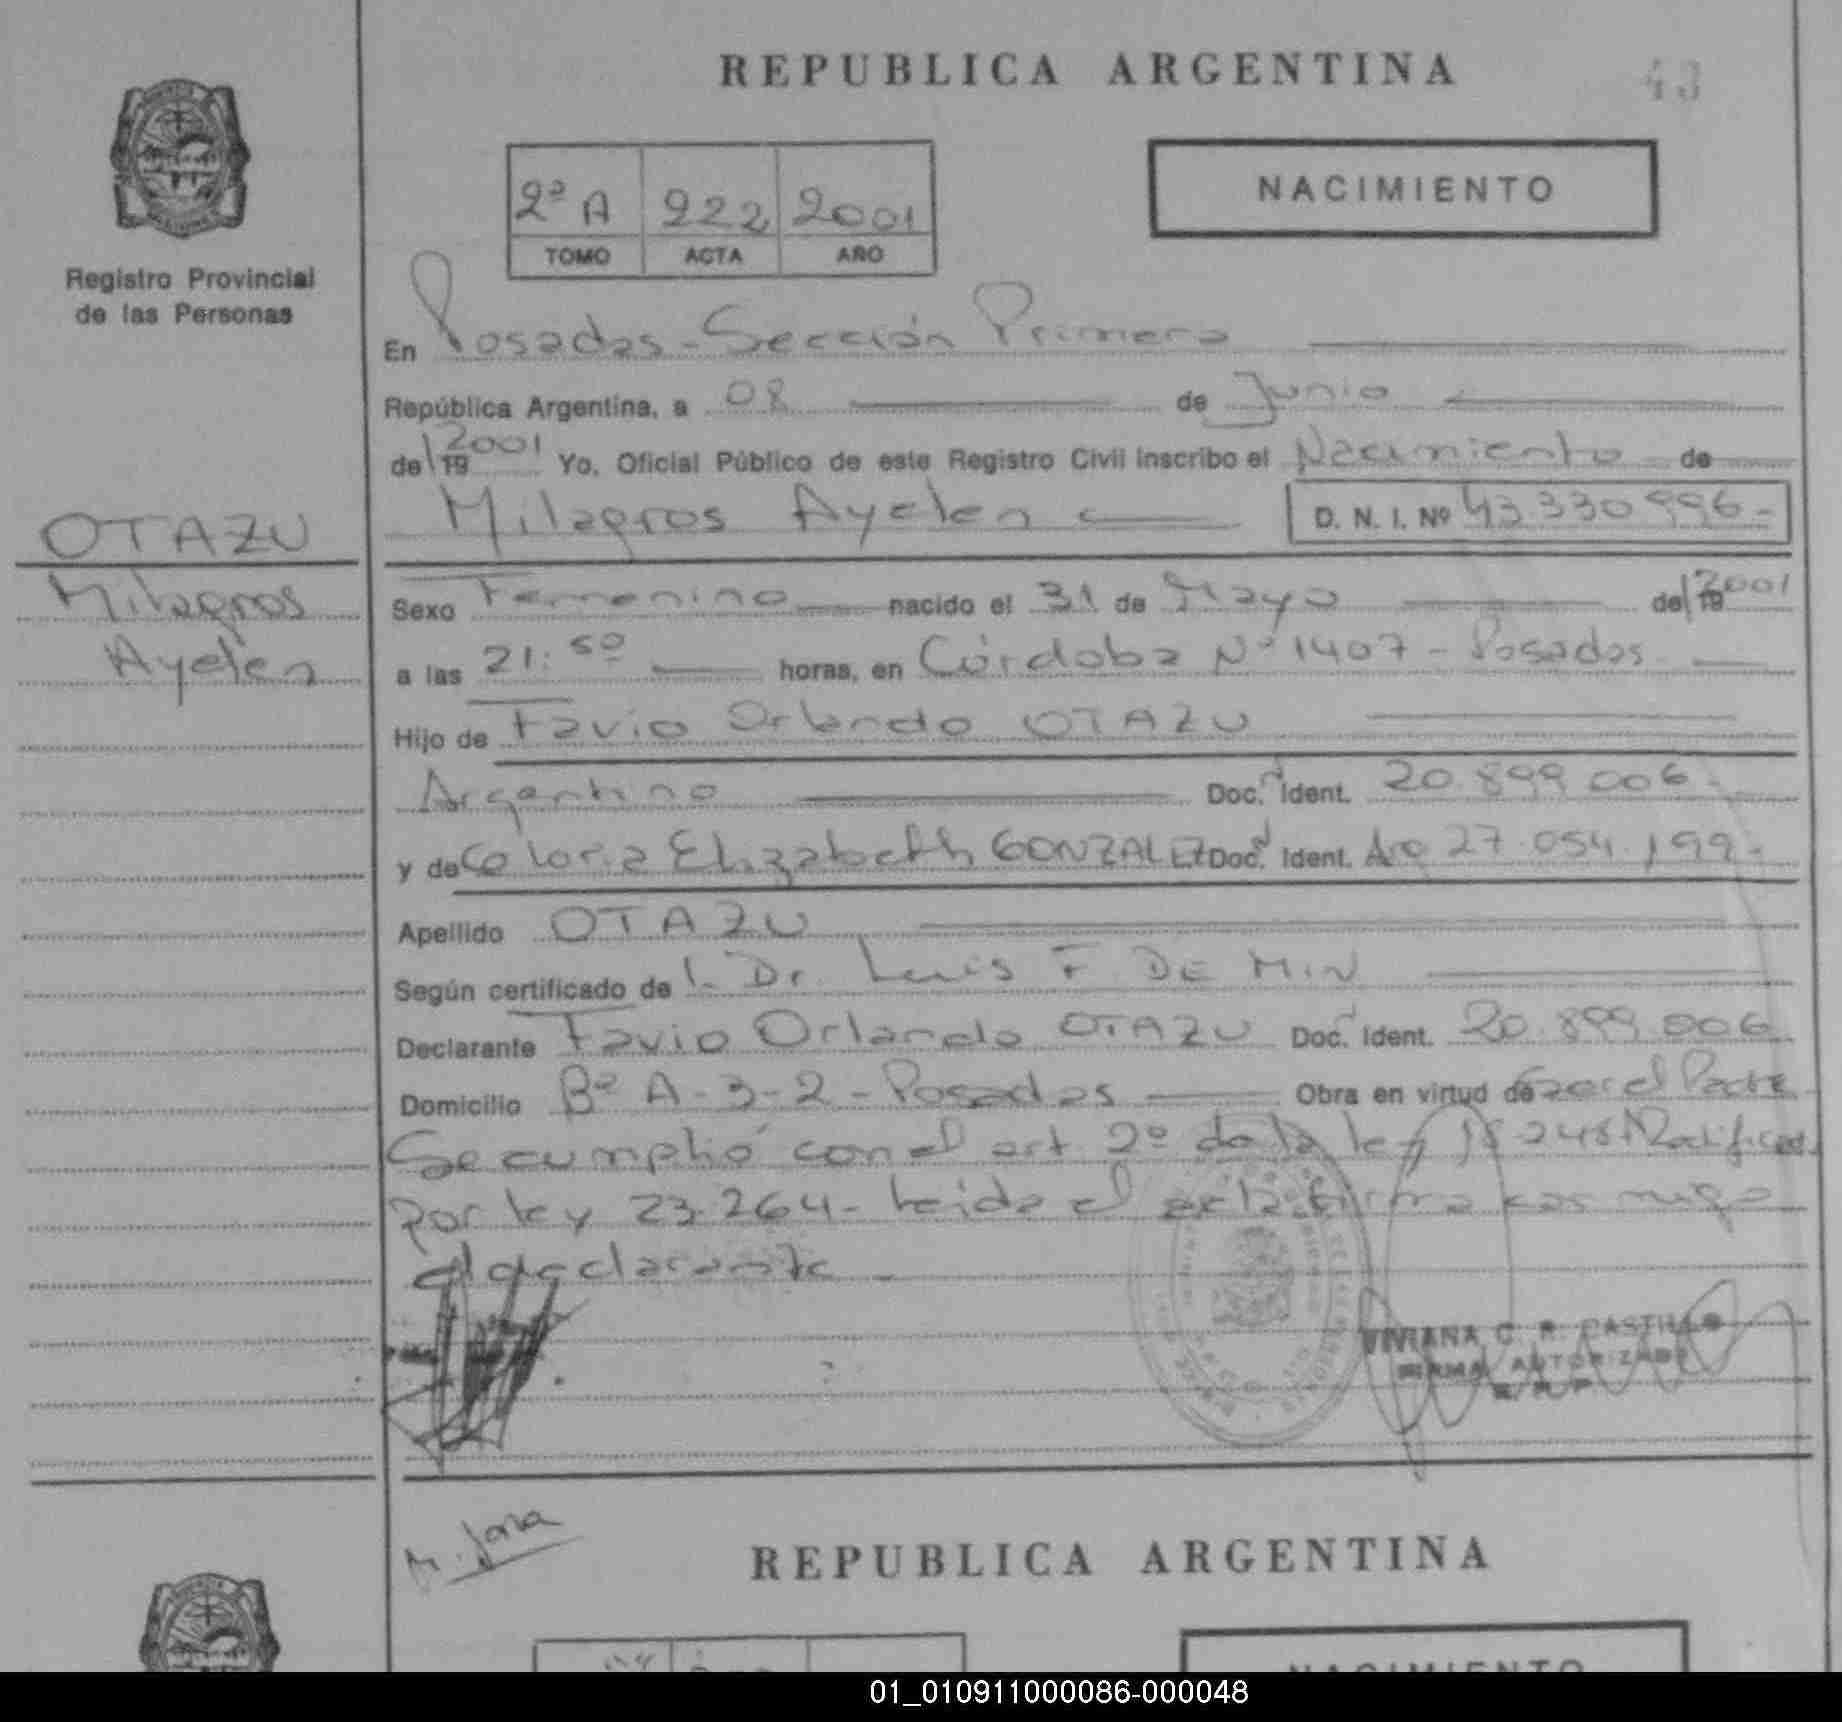 REPUBLICA ARGENTINA
43
2ª A 222 2001
TOMO ACTA AÑO
NACIMIENTO
Registro Provincial
de las Personas
En Posadas - Sección Primera
República Argentina, a 08 de Junio
de 19 2001 Yo, Oficial Público de este Registro Civil inscribo el Nacimiento de
Milagros Ayelen D. N. I. Nº 43.330.996-
OTAZU
Milagros
Ayelen
Sexo Femenino nacido el 31 de Mayo de 19 2001
a las 21:50 horas, en Córdoba Nº 1407 - Posadas
Hijo de Favio Orlando OTAZU
Argentino Doc. Ident. 20.899.006.
y de Gloria Elizabeth GONZALEZ Doc. Ident. Arg 27.054.199.
Apellido OTAZU
Según certificado de l. Dr. Luis F. DE MIN
Declarante Favio Orlando OTAZU Doc. Ident. 20.899.006
Domicilio Bº A-3-2 - Posadas Obra en virtud de ser el Padre
Se cumplió con el art. 2º de la ley 18.248 Modificad.
por ley 23.264 - Leida el acta firma conmigo
el declarante -
VIVIANA C. R. CASTILLO
FIRMA AUTORIZADA
R. R. P.
REPUBLICA ARGENTINA
NACIMIENTO
01_010911000086-000048